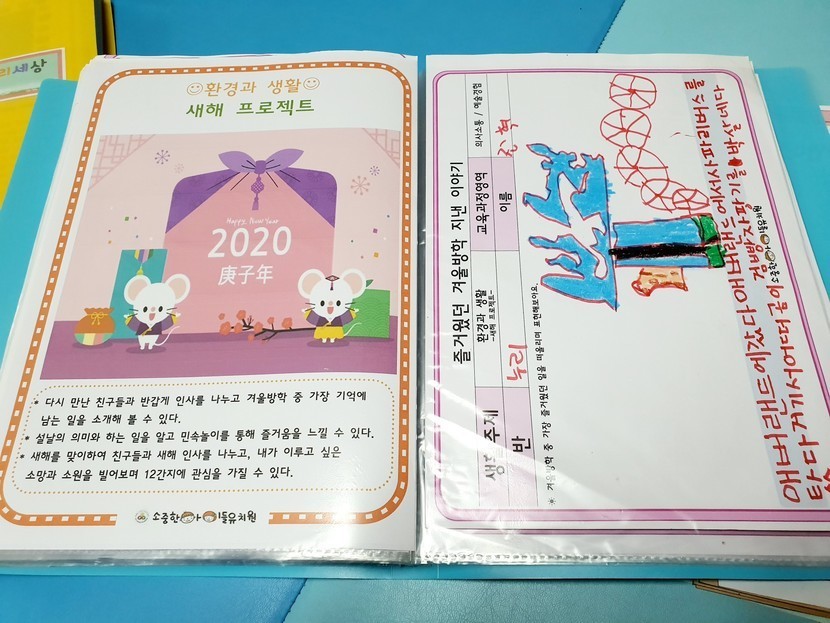 리세상
환경과 생활
새해 프로젝트
Happy New Year
2020
庚子年
* 다시 만난 친구들과 반갑게 인사를 나누고 겨울방학 중 가장 기억에
남는 일을 소개해 볼 수 있다.
* 설날의 의미와 하는 일을 알고 민속놀이를 통해 즐거움을 느낄 수 있다.
* 새해를 맞이하여 친구들과 새해 인사를 나누고, 내가 이루고 싶은
소망과 소원을 빌어보며 12간지에 관심을 가질 수 있다.
소중한아이들유치원
즐거웠던 겨울방학 지낸 이야기
생활주제
환경과 생활
-새해 프로젝트-
교육과정영역
의사소통 / 예술경험
반
누리
이름
진혁
* 겨울방학 중 가장 즐거웠던 일을 떠올리며 표현해보아요.
소중한아이들유치원
애버랜드에갔다애버랜드에서사파리버스를
탔다거기서어떠곰이
박살데다